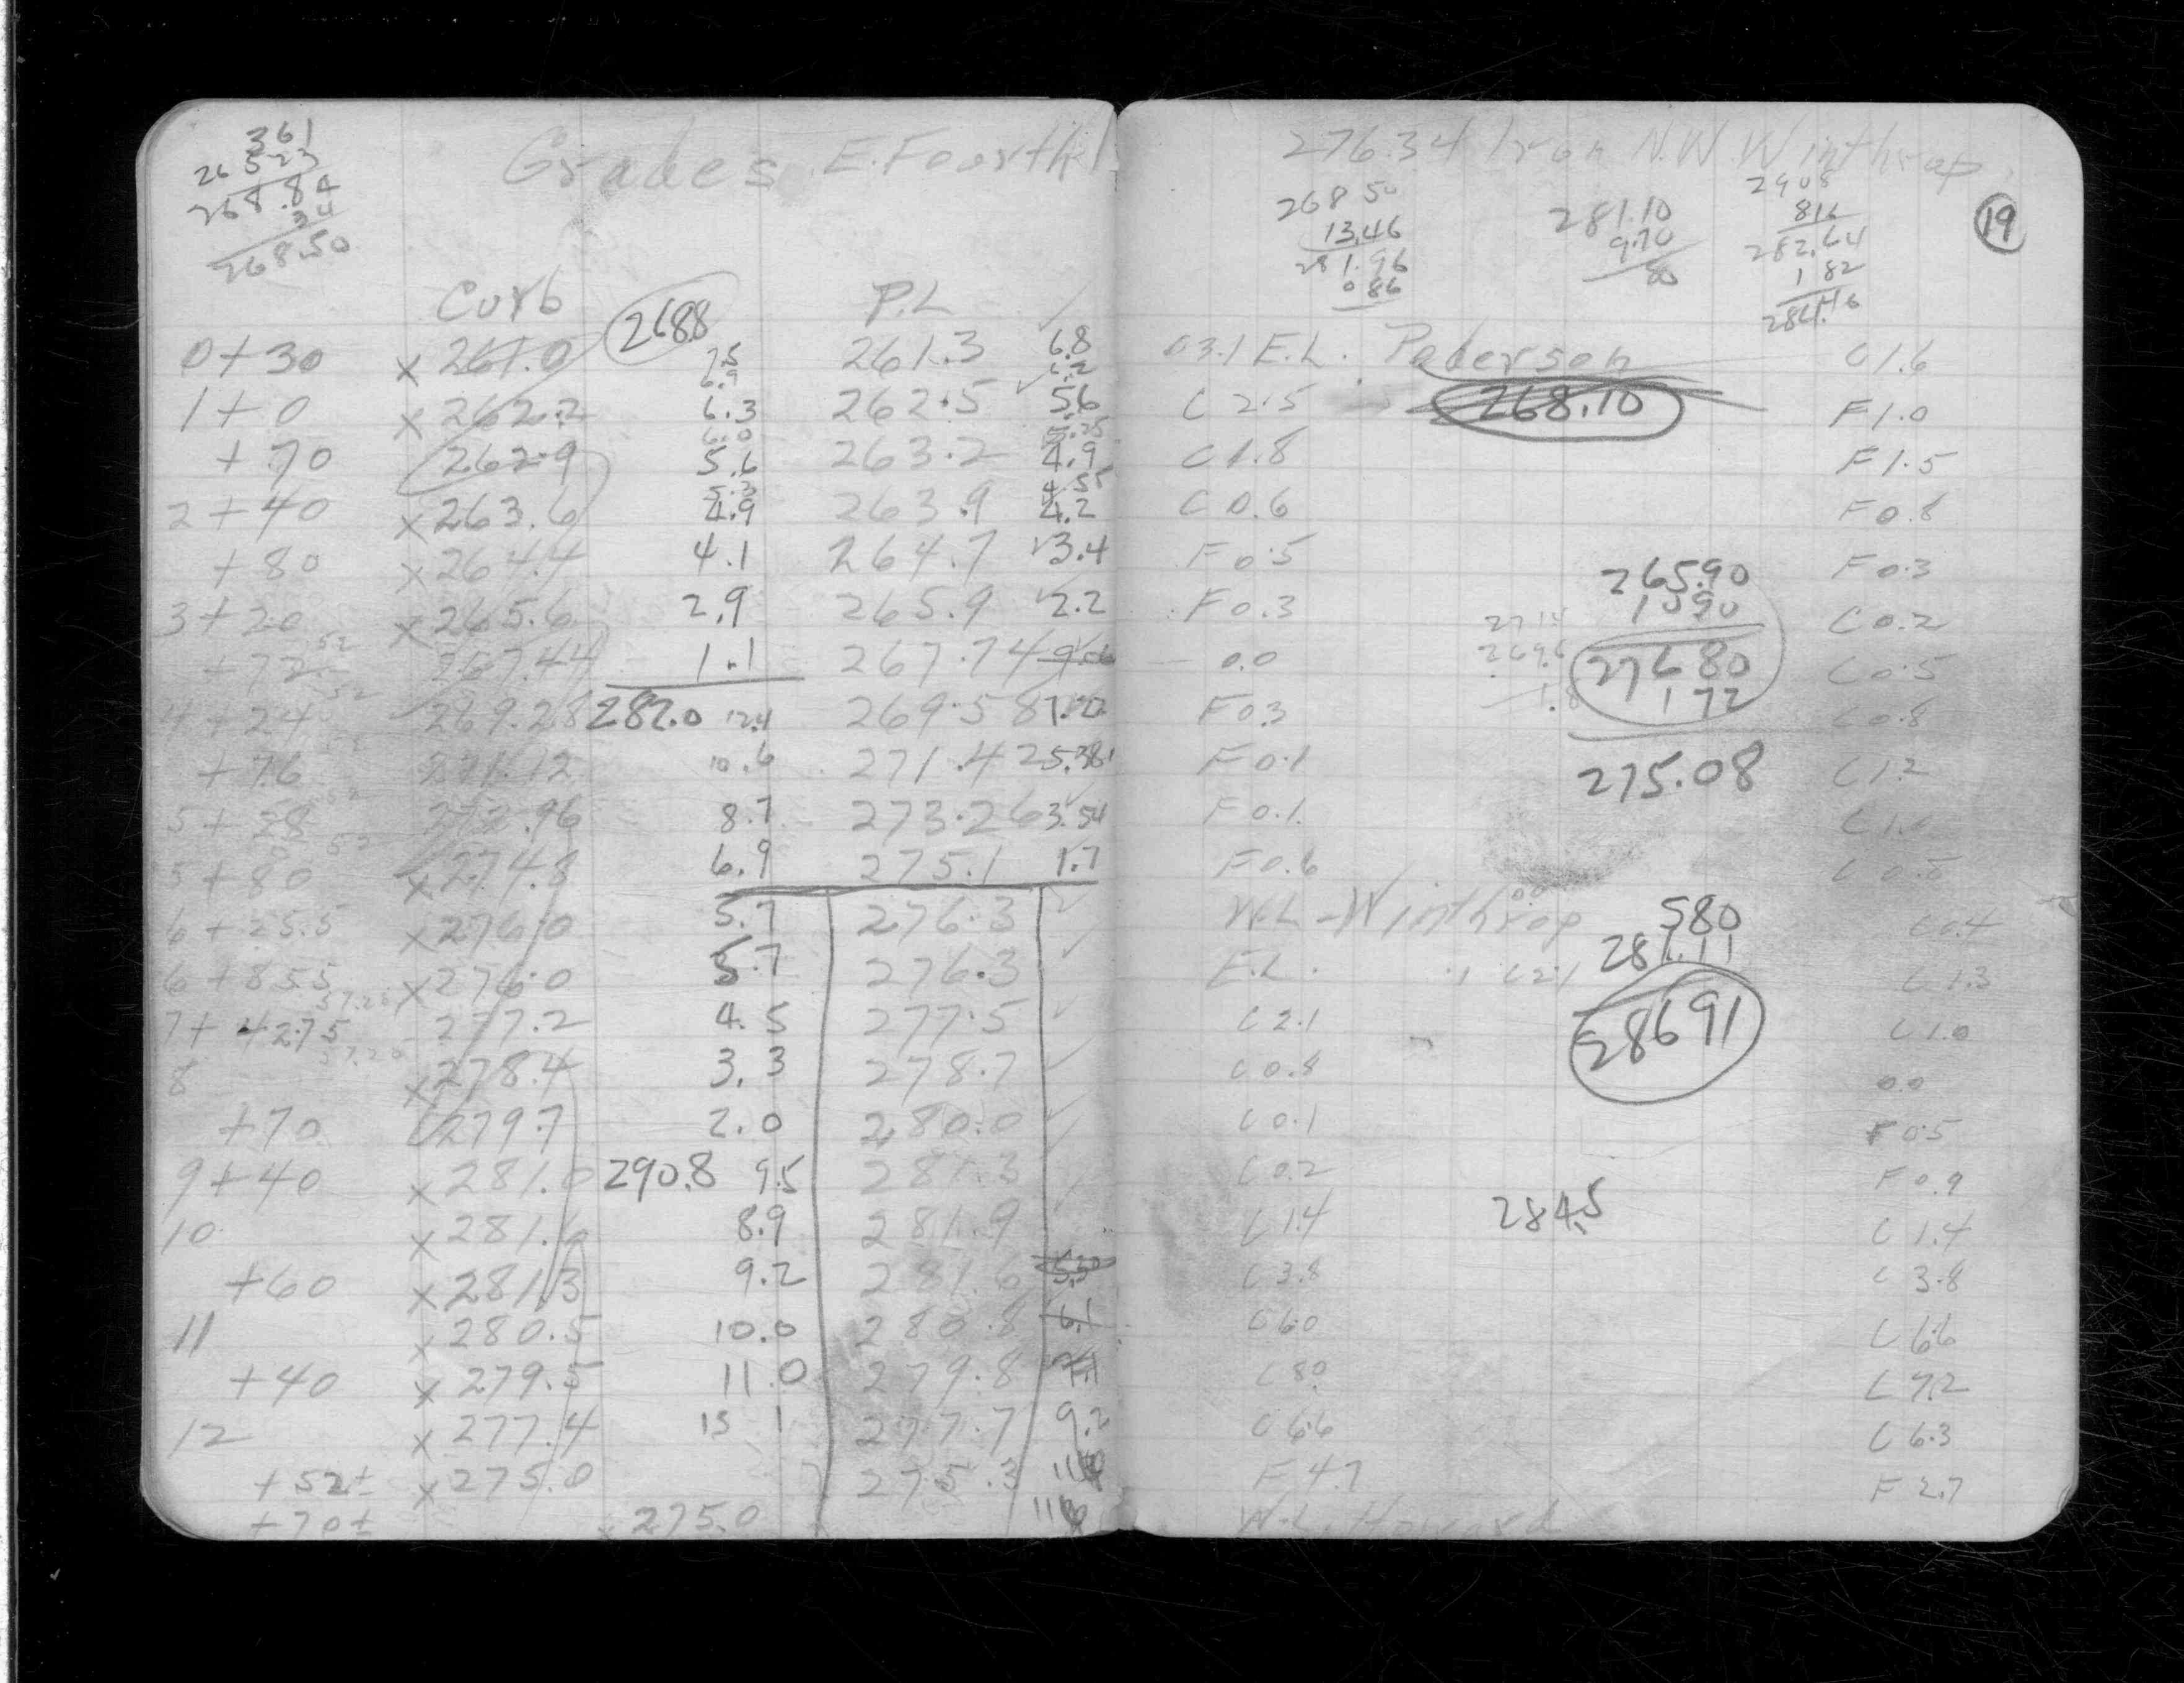 361
26 5 23
268.84
34
268.50
Grades E. Fourth
Curb 2688 P.L
0+30 x 261.0 7.5 261.3 6.8
6.9 6.2
1+0 x 262.2 6.3 262.5 5.6
6.0 5.25
+70 262.9 5.6 263.2 4.9
5.3 4.55
2+40 x 263.6 4.9 263.9 4.2
+80 x 264.4 4.1 264.7 3.4
3+20 x 265.6 2.9 265.9 2.2
+72 52 267.44 1.1 267.74
4+24 52 269.28 282.0 12.4 269.58
+76 271.12 10.6 271.42 5.38
5+28 52 272.96 8.7 273.26 3.54
5+80 52 x 274.8 6.9 275.1 1.7
6+25.5 x 276.0 5.7 276.3
6+85.5 x 276.0 5.7 276.3
7+42.75 57.25 277.2 4.5 277.5
8 57.25 x 278.4 3.3 278.7
+70 279.7 2.0 280.0
9+40 x 281.0 290.8 9.5 281.3
10 x 281.6 8.9 281.9
+60 x 281.3 9.2 281.6
11 x 280.5 10.0 280.8 6.1
+40 x 279.5 11.0 279.8
12 x 277.4 13 1 277.7 9.2
+52± x 275.0 275.3
+70± x 275.0
276.34 Iron N.W. Winthrop
19
268 50
13.46
281.96
0 86
281.10
9.70
80
2908
816
282.64
1 82
284.46
03.1 E.L. Paderson C 1.6
C 2.5 268.10 F 1.0
C 1.8 F 1.5
C 0.6 F 0.8
F 0.5 265.90 F 0.3
F 0.3 1090 C 0.2
0.0 27680 C 0.5
F 0.3 1.8 172 C 0.8
F 0.1 275.08 C 1.2
F 0.1
F 0.6
W.L - Winthrop 580 C 0.4
E.L. C 2.1 281.11 C 1.3
C 2.1 28691 C 1.0
C 0.8 0.0
C 0.1 F 0.5
C 0.2 284.5 F 0.9
C 1.4 C 1.4
C 3.8 C 3.8
C 6.0 C 6.6
C 8.0 C 7.2
C 6.6 C 6.3
F 4.7 F 2.7
W.L. Howard